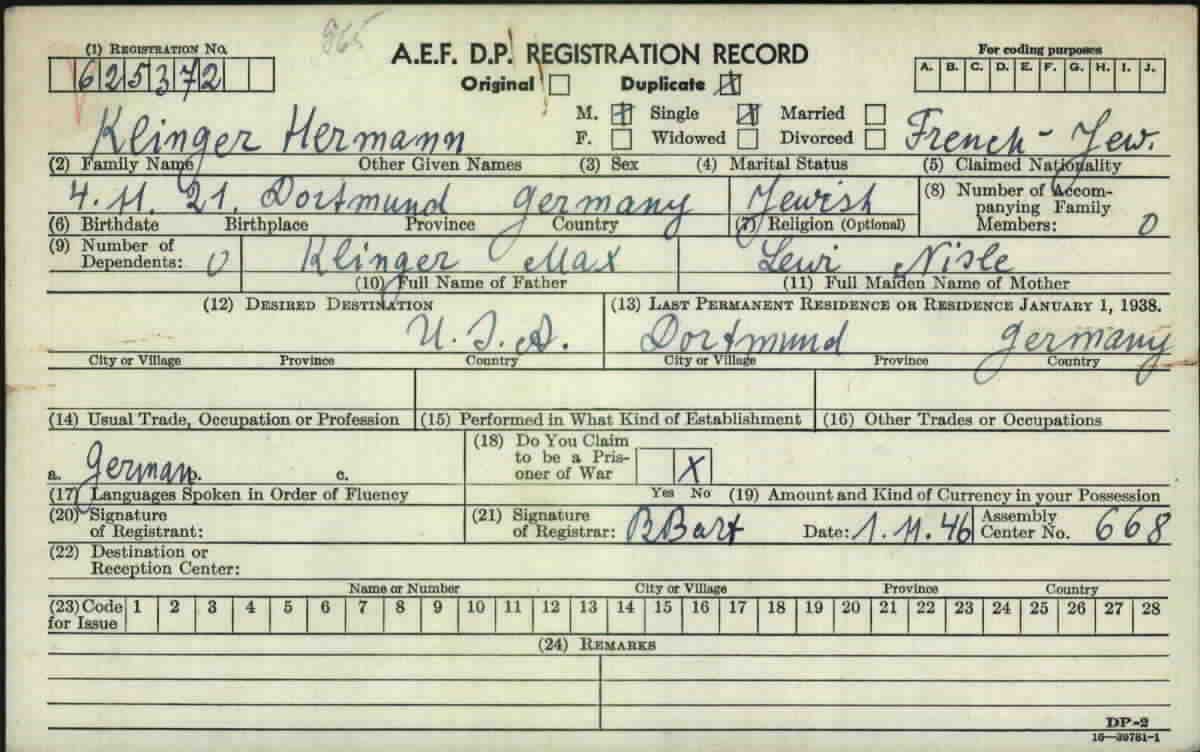 965
(1) REGISTRATION NO.
625372
A.E.F. D.P. REGISTRATION RECORD
Original Duplicate X
For coding purposes
A. B. C. D. E. F. G. H. I. J.
Klinger Hermann
M. X Single X Married
F. Widowed Divorced
French - Jew.
(2) Family Name Other Given Names (3) Sex (4) Marital Status (5) Claimed Nationality
4. 11. 21. Dortmund Germany Jewish
(6) Birthdate Birthplace Province Country (7) Religion (Optional)
(8) Number of Accom-
panying Family
Members: 0
(9) Number of
Dependents: 0
Klinger Max
(10) Full Name of Father
Lewi Nisle
(11) Full Maiden Name of Mother
(12) DESIRED DESTINATION
(13) LAST PERMANENT RESIDENCE OR RESIDENCE JANUARY 1, 1938.
U. S. A. Dortmund Germany
City or Village Province Country City or Village Province Country
(14) Usual Trade, Occupation or Profession (15) Performed in What Kind of Establishment (16) Other Trades or Occupations
a. German b. c.
(17) Languages Spoken in Order of Fluency
(18) Do You Claim
to be a Pris-
oner of War X
Yes No
(19) Amount and Kind of Currency in your Possession
(20) Signature
of Registrant:
(21) Signature
of Registrar: BBart Date: 1. 11. 46
Assembly
Center No. 668
(22) Destination or
Reception Center:
Name or Number City or Village Province Country
(23) Code
for Issue
1 2 3 4 5 6 7 8 9 10 11 12 13 14 15 16 17 18 19 20 21 22 23 24 25 26 27 28
(24) REMARKS
DP-2
16—39781-1